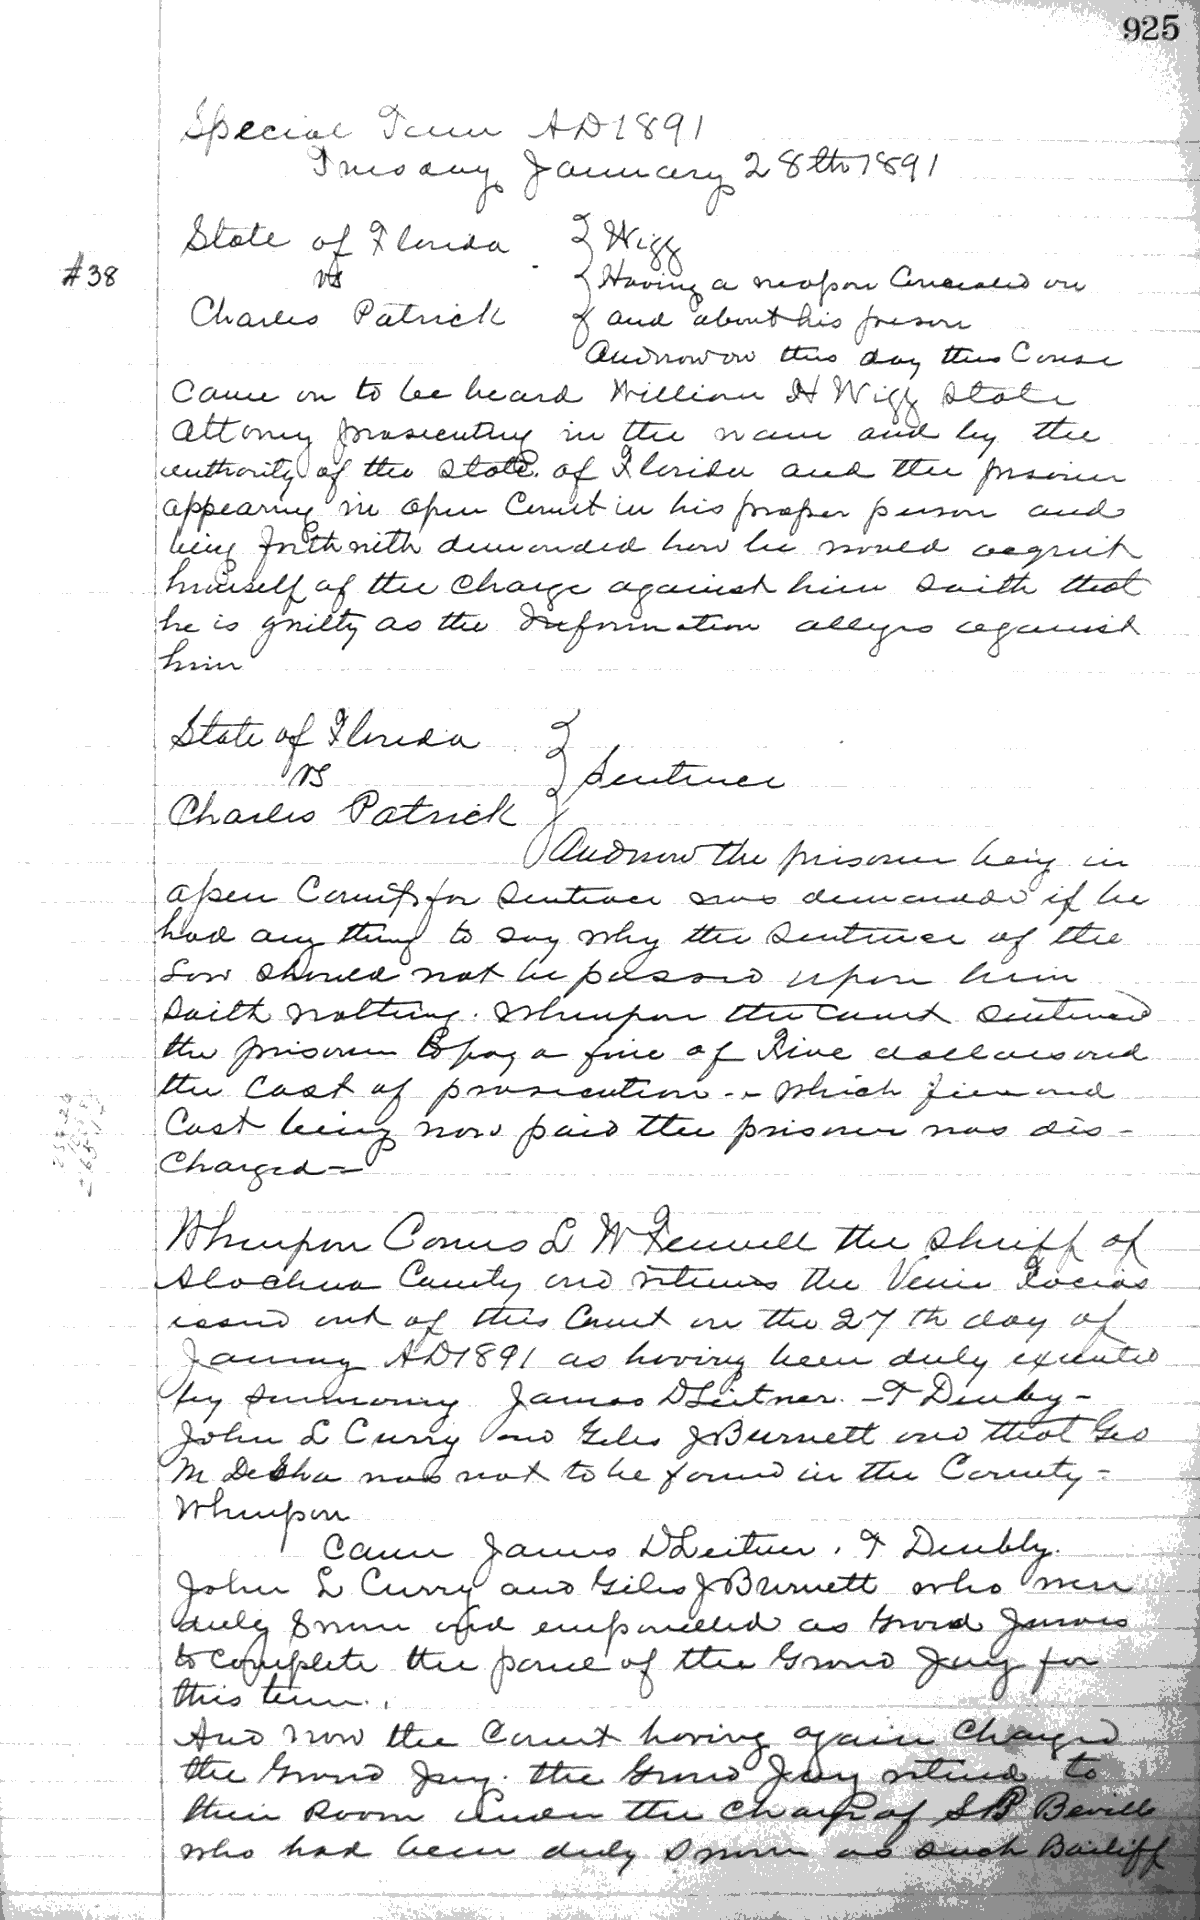 925
Special Term AD 1891
Tuesday January 28th 1891
State of Florida } Wigg
#38 vs } Having a weapon Concealed on
Charles Patrick } and about his person
And now on this day this Cause
Came on to be heard William H Wigg State
Attorney prosecuting in the name and by the
authority of the State of Florida and the prisoner
appearing in open Court in his proper person and
being forthwith demanded how he would acquit
himself of the Charge against him Saith that
he is guilty as the Information alleges against
him
State of Florida }
vs } Sentence
Charles Patrick }
And now the prisoner being in
open Court for Sentence was demanded if he
had any thing to say why the Sentence of the
Law should not be passed upon him
Saith nothing. Whereupon the Court Sentenced
the prisoner to pay a fine of Five dollars and
the Cost of prosecution -- which fine and
Cost being now paid the prisoner was dis-
Charged =
Whereupon Comes L W Fennell the Sheriff of
Alachua County and returns the Venire Facias
issued out of this Court on the 27th day of
January AD 1891 as having been duly executed
by Summoning James D Leitner - T Denby -
John L Curry and Giles J Burnett and that Geo
M DeSha was not to be found in the County =
Whereupon
Came James D Leitner, T Denbly.
John L Curry and Giles J Burnett who were
duly Sworn and empanelled as Grand Jurors
to Complete the panel of the Grand Jury for
this term.
And now the Court having again Charged
the Grand Jury. the Grand Jury retired to
their Room under the Charge of S B Beville
who had been duly Sworn as such Bailiff